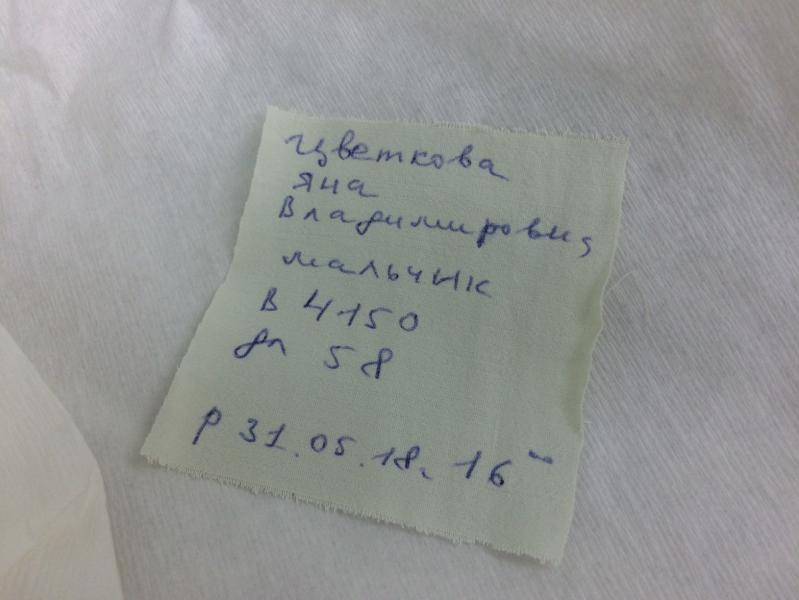 Цветкова
Яна
Владимировна
мальчик
В 4150
дл 58
р 31.05.18. 16⁰⁰